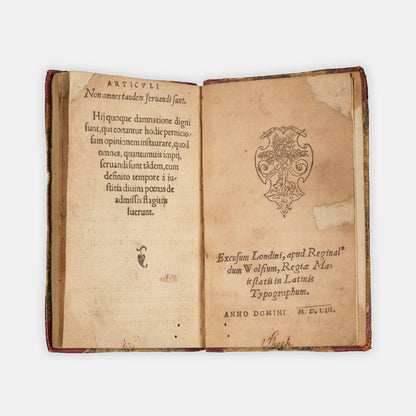 ARTICVLI
Non omnes tandem seruandi sunt.
Hij quoque damnatione digni
sunt, qui conantur hodie pernicio-
sam opinionem instaurare, quod
omnes, quantumuis impij,
seruandi sunt tãdem, cum
definito tempore à iu-
stitia diuina pœnas de
admissis flagitijs
luerunt.
Excusum Londini, apud Reginal-
dum Wolfium, Regiæ Ma-
iestatis in Latinis
Typographum.
ANNO DOMINI M. D. LIII.